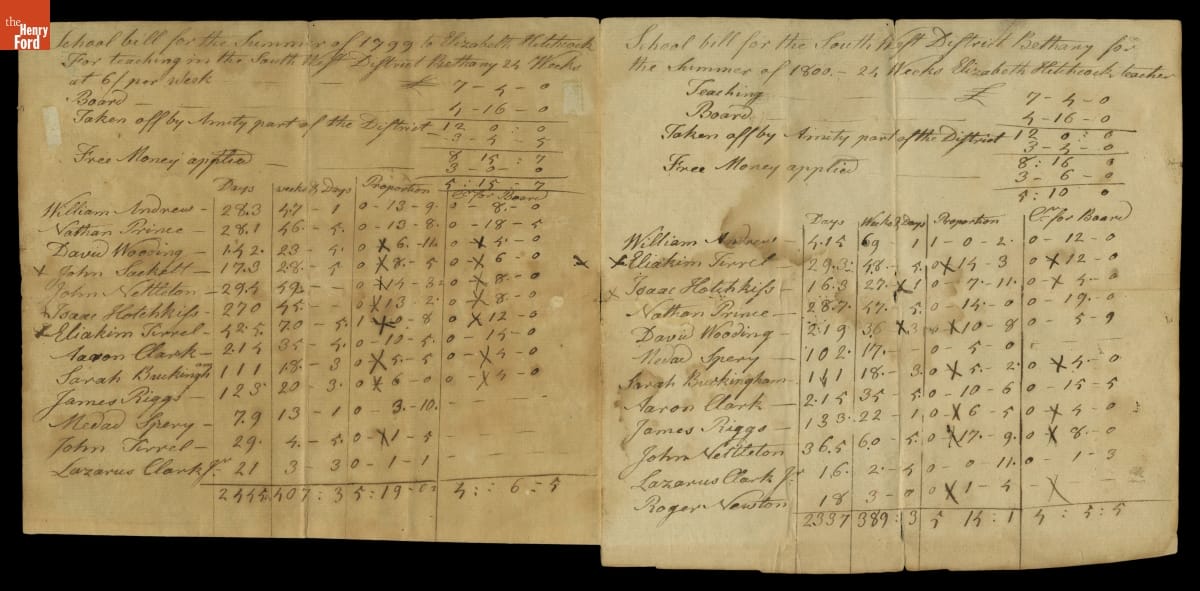 the
Henry
Ford
School bill for the Summer of 1799 to Elizabeth Hitchcock
For teaching in the South West District Bethany 24 Weeks
at 6/ per week £ 7 - 4 - 0
Board 4 - 16 - 0
Taken off by Amity part of the District 12 0 : 0
3 - 4 - 5
8 15 : 7
Free Money applied 3 - 0 - 0
5 : 15 - 7
Days weeks & Days Proportion Cr for Board
William Andrew - 283 47 - 1 0 - 13 - 9 0 - 8 - 0
Nathan Prince - 281 46 - 5 0 - 13 - 8 0 - 18 - 5
David Wooding - 142 23 - 4 0 X 6 - 11 0 X 4 - 0
x John Sackett - 173 28 - 5 0 X 8 - 5 0 X 6 - 0
John Nettleton - 294 49 - 0 X 14 - 3 0 X 8 - 0
Isaac Hotchkiss - 270 45 - 0 X 13 - 2 0 X 8 - 0
x Eliakim Tirrel - 425 70 - 5 1 X 0 - 8 0 X 12 - 0
Aaron Clark - 214 35 - 4 0 - 10 - 5 0 - 14 - 0
Sarah Buckingham 111 18 - 3 0 X 5 - 5 0 X 4 - 0
James Riggs - 123 20 - 3 0 X 6 - 0 0 - X 4 - 0
Medad Spery - 79 13 - 1 0 - 3 - 10
John Tirrel - 29 4 - 5 0 - X 1 - 5
Lazarus Clark Jr 21 3 - 3 0 - 1 - 1
2445 407 : 3 5 : 19 - 4 : 6 : 5
School bill for the South West District Bethany for
the Summer of 1800 - 24 Weeks Elizabeth Hitchcock teacher
Teaching £ 7 - 4 - 0
Board 4 - 16 - 0
Taken off by Amity part of the District 12 0 : 0
3 - 4 - 0
8 : 16 0
Free Money applied 3 - 6 - 0
5 : 10 0
Days Weeks & Days Proportion Cr for Board
William Andrew - 415 69 1 1 - 0 - 2 0 - 12 - 0
x Eliakim Tirrel - 293 48 - 5 0 X 14 - 3 0 X 12 - 0
x Isaac Hotchkiss - 163 27 X 1 0 - 7 - 11 0 - X 4 - 0
Nathan Prince - 287 47 - 5 0 - 14 - 0 0 - 19 - 0
David Wooding 219 36 X 3 0 X 10 - 8 0 - 5 - 9
Medad Spery - 102 17 - 0 - 5 - 0
Sarah Buckingham - 111 18 - 3 0 X 5 - 2 0 X 4 - 0
Aaron Clark - 215 35 - 5 0 - 10 - 6 0 - 15 - 5
James Riggs - 133 22 1 0 X 6 - 5 0 X 4 - 0
John Nettleton 365 60 - 5 0 X 17 - 9 0 X 8 - 0
Lazarus Clark Jr 16 2 - 4 0 - 0 - 11 0 - 1 - 3
Roger Newton 18 3 - 0 0 X 1 - 4 - X
2337 389 : 3 5 14 : 1 4 : 5 : 5